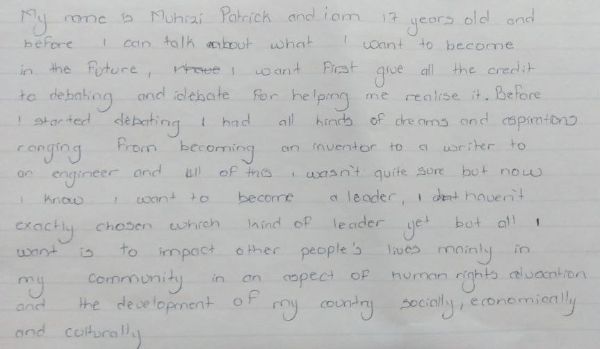 My name is Muhizi Patrick and i am 17 years old and
before I can talk about what I want to become
in the future, I want First give all the credit
to debating and idebate for helping me realise it. Before
I started debating I had all kinds of dreams and aspirations
ranging From becoming an inventor to a writer to
an engineer and all of this I wasn't quite sure but now
I know I want to become a leader, I haven't
exactly chosen which kind of leader yet but all I
want is to impact other people's lives mainly in
my community in an aspect of human rights advocation
and the development of my country socially, economically
and culturally